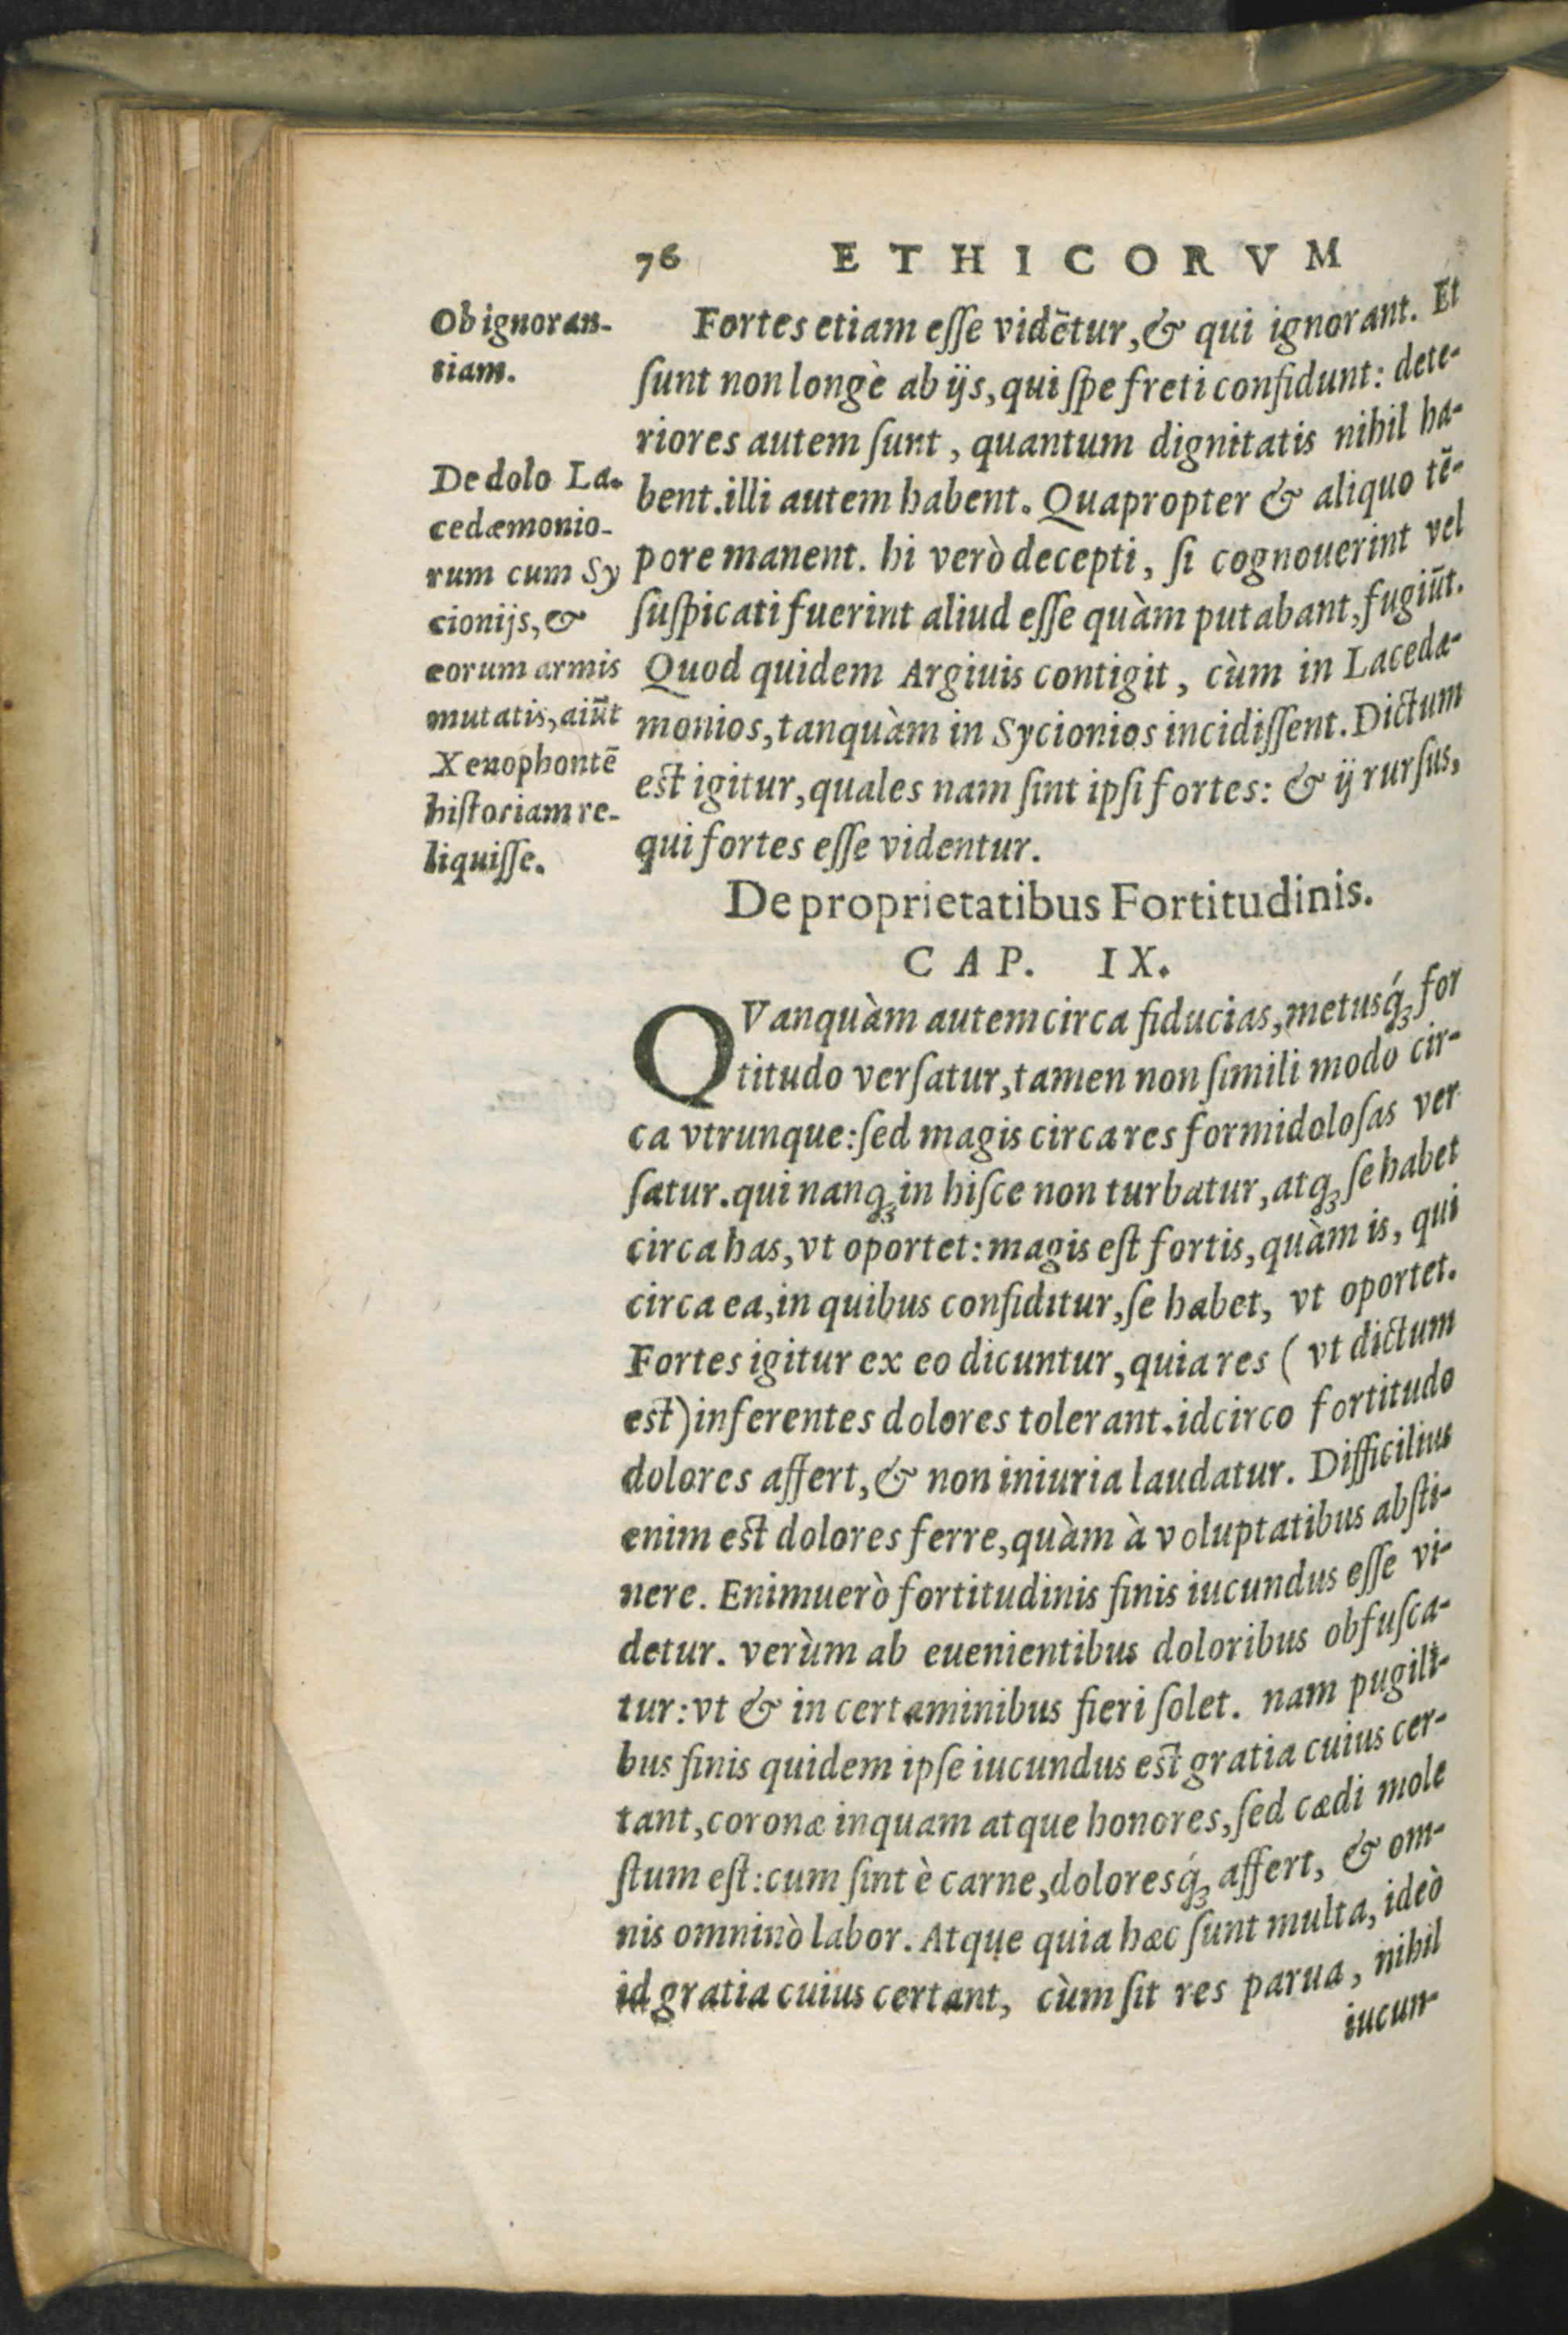 76 ETHICORVM
Ob ignoran-
tiam.
De dolo La-
cedæmonio-
rum cum Sy
cionijs, &
eorum armis
mutatis, aiūt
Xenophontē
historiam re-
liquisse.
Fortes etiam esse vidētur, & qui ignorant. Et
sunt non longè ab ijs, qui spe freti confidunt: dete-
riores autem sunt, quantum dignitatis nihil ha-
bent. illi autem habent. Quapropter & aliquo tē-
pore manent. hi verò decepti, si cognouerint vel
suspicati fuerint aliud esse quàm putabant, fugiūt.
Quod quidem Argiuis contigit, cùm in Laceda-
monios, tanquàm in Sycionios incidissent. Dictum
est igitur, quales nam sint ipsi fortes: & ij rursus,
qui fortes esse videntur.
De proprietatibus Fortitudinis.
CAP. IX.
QVanquàm autem circa fiducias, metusq́ꝫ for
titudo versatur, tamen non simili modo cir-
ca vtrunque: sed magis circa res formidolosas ver
satur. qui nanqꝫ in hisce non turbatur, atqꝫ se habet
circa has, vt oportet: magis est fortis, quàm is, qui
circa ea, in quibus confiditur, se habet, vt oportet.
Fortes igitur ex eo dicuntur, quia res (vt dictum
est) inferentes dolores tolerant. idcirco fortitudo
dolores affert, & non iniuria laudatur. Difficilius
enim est dolores ferre, quàm à voluptatibus absti-
nere. Enimuerò fortitudinis finis iucundus esse vi-
detur. verùm ab euenientibus doloribus obfusca-
tur: vt & in certaminibus fieri solet. nam pugili-
bus finis quidem ipse iucundus est gratia cuius cer-
tant, coronæ inquam atque honores, sed cædi mole
stum est: cum sint è carne, doloresq́ꝫ affert, & om-
nis omninò labor. Atque quia hæc sunt multa, ideò
id gratia cuius certant, cùm sit res parua, nihil
iucun-